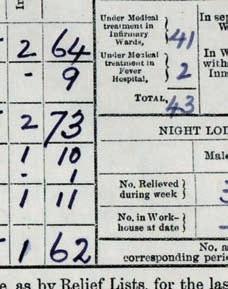 In
2 64
- 9
2 73
1 10
- 1
1 11
1 62
Under Medical
treatment in
Infirmary
Wards,
41
Under Medical
treatment in
Fever
Hospital,
2
TOTAL, 43
In se
In W
with
Inn
NIGHT LOD
Male
No. Relieved
during week
No. in Work-
house at date
-
No. a
corresponding perio
e, as by Relief Lists, for the las